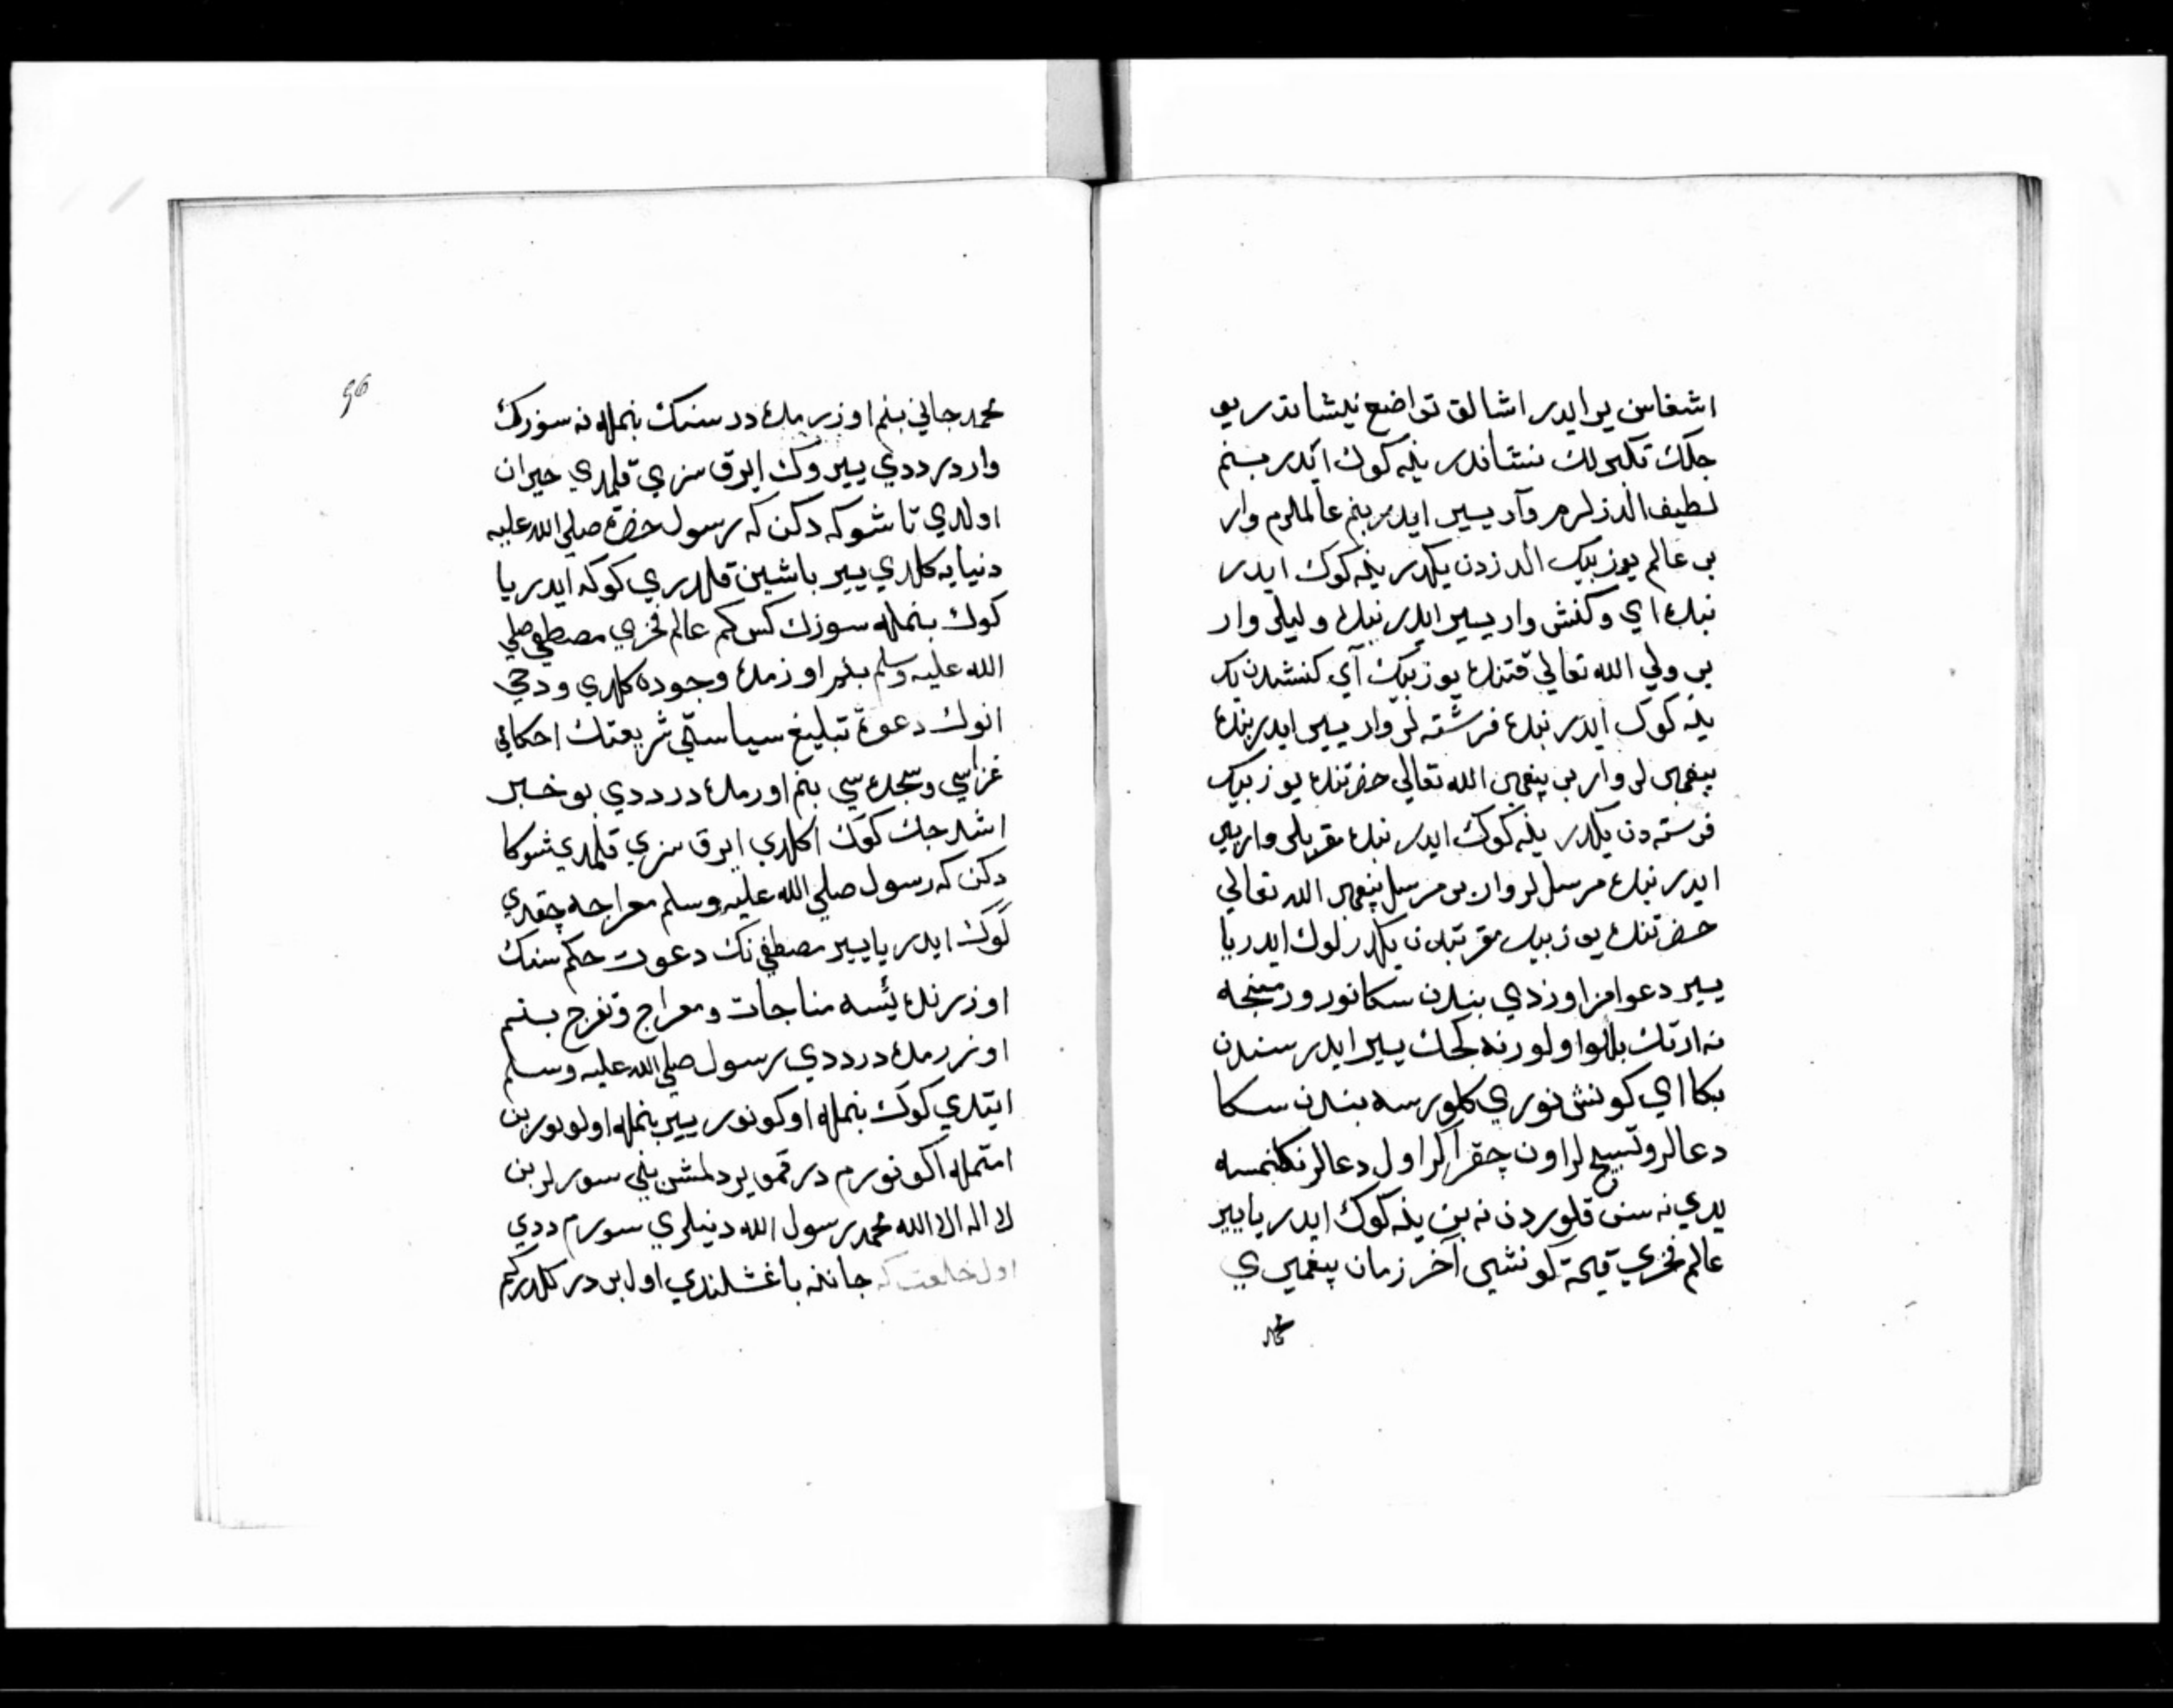 اشغاسن ير ايدر اشالق تواضع نيشاندر يو
جلك تكبرلك نشاندر ينه كوك ايدر بنم
لطيف الدزلرم وآر يير ايدر بنم عالملرم وار
بر عالم يوز بيك الدزدن يكدر ينه كوك ايدر
نبده اي وكنش وار يير ايدر نبده وليلر وار
بر ولي الله تعالي قتنده يوز بيك آي كنشدن يك
ينه كوك ايدر نبده فرشته لر وار يير ايدر بنده
پيغمبر لر وار بر پيغمبر الله تعالي حضرتنده يوز بيك
فرسته دن يكدر ينه كوك ايدر نبده مقربلر وار يير
ايدر نبده مرسل لر وار بر مرسل پيغمبر الله تعالي
حضرتنده يوز بيك مقربدن يكدر كوك ايدر يا
يير دعوامز اوزدي بندن سكا نور ورمنجه
نه ارتك بللوا اولور نه كجك يير ايدر سندن
بكا اي كونش نوري كلورسه بندن سكا
دعالر وتسبيح لر اون چقر اكر اول دعالر نكلنمسه
يدي نه سن قلوردن نه بن ينه كوك ايدر يا يير
عالم فخري قيمة كونشي آخر زمان پيغمبري
محمد
96
محمد جاني بنم اوزرمده در سنك بنمله نه سوزك
واردر ددي يير وك ايرق سزي قلمدي حيران
اولدي تا شوكه دكن كه رسول حضرة صلي الله عليه
دنيايه كلدي يير باشين قلدردي كوكه ايدر يا
كوك بنمله سوزك كس كم عالم فخري مصطفي صلي
الله عليه وسلم بنم اوزمده وجوده كلدي ودخي
انوك دعوة تبليغ سياستي شريعتك احكامي
غزاسي وسجده سي بنم اورمده در ددي بو خبر
اشدجك كوك اكلدي ايرق سزي قلمدي شوكا
دكن كه رسول صلي الله عليه وسلم معراجه چقدي
كوك ايدر يا يير مصطفي نك دعوت حكم سنك
اوزرنده يسه مناجات ومعراج وتفرج بنم
اوزرمده در ددي رسول صلي الله عليه وسلم
ايتدي كوك بنمله اوكونور يير بنمله اولونور بن
امتمله اكونورم در قمو يردلمش بني سورلر بن
لا اله الا الله محمد رسول الله دنيلري سورم ددي
اول خلعت كه جاننه باغشلندي اول بر در كلدر كم